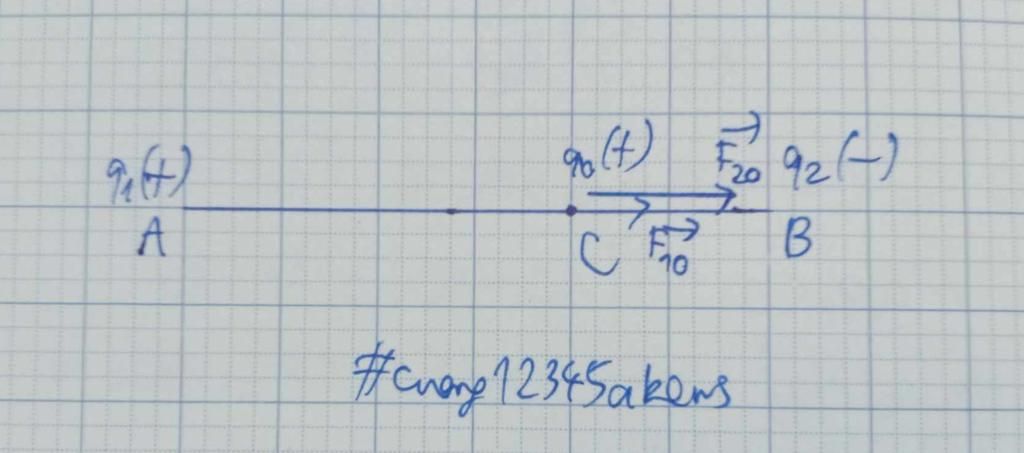 q₁(+) q₀(+) F₂₀ q₂(-)
A C F₁₀ B
#cuong12345akems